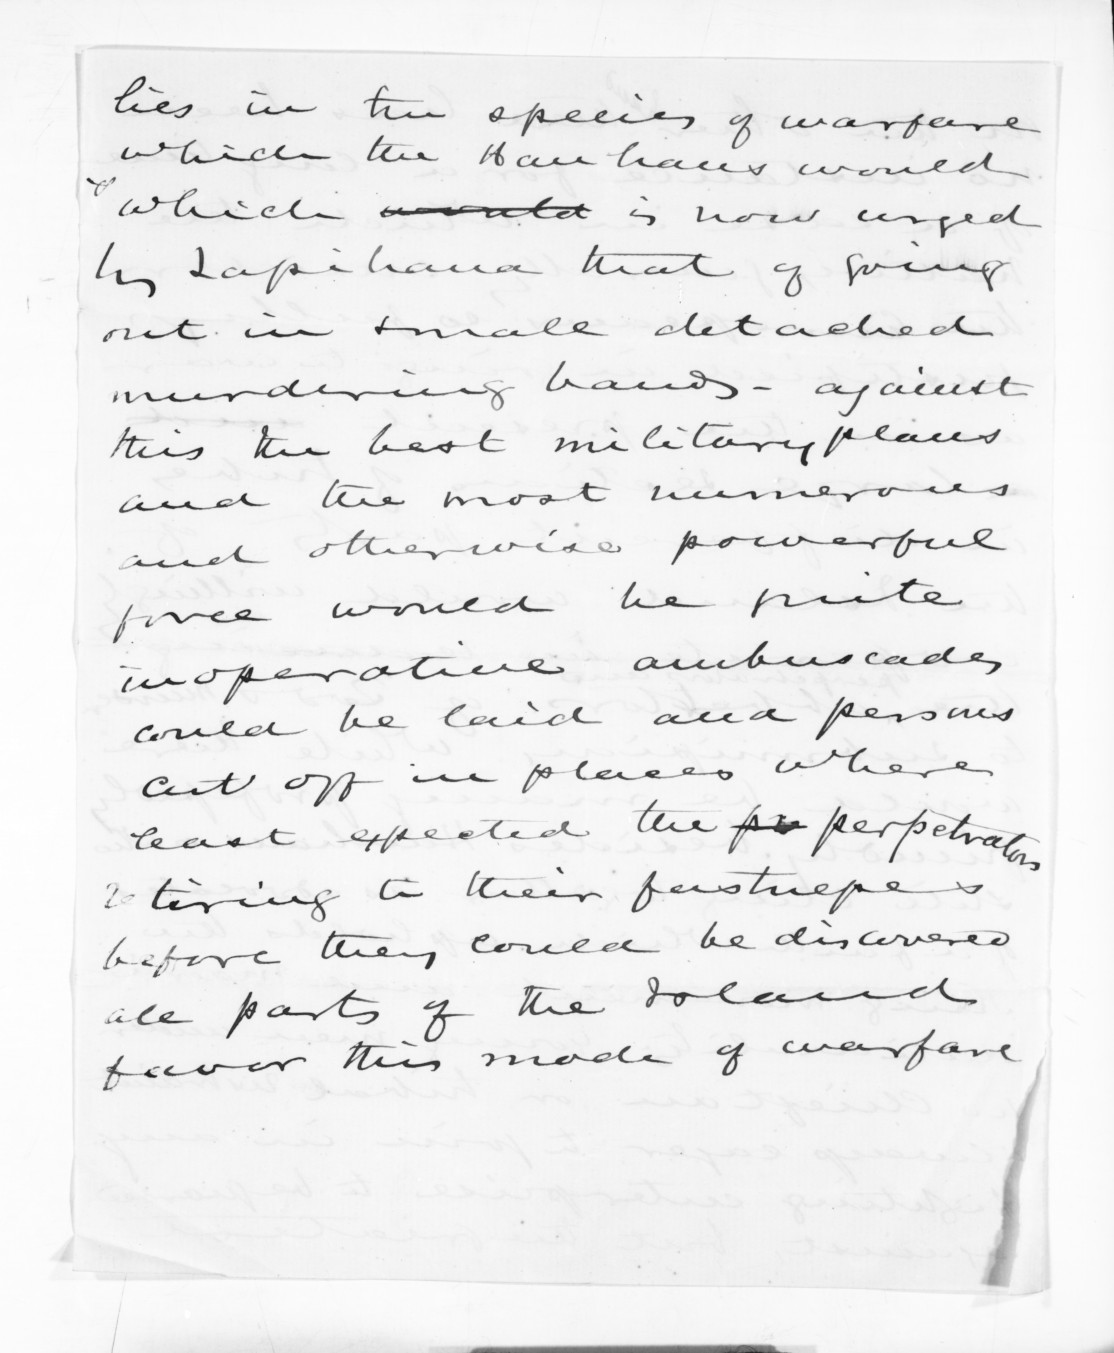 lies in the species of warfare
which the Hau haus would
& which ~~would~~ is now urged
by Tapihana that of going
out in small detached
murdering bands - against
this the best military plans
and the most numerous
and otherwise powerful
force would be quite
inoperative ambuscades
could be laid and persons
cut off in places where
least expected the ~~pu~~ perpetrators
retiring to their fastnesses
before they could be discovered
all parts of the Island
favor this mode of warfare